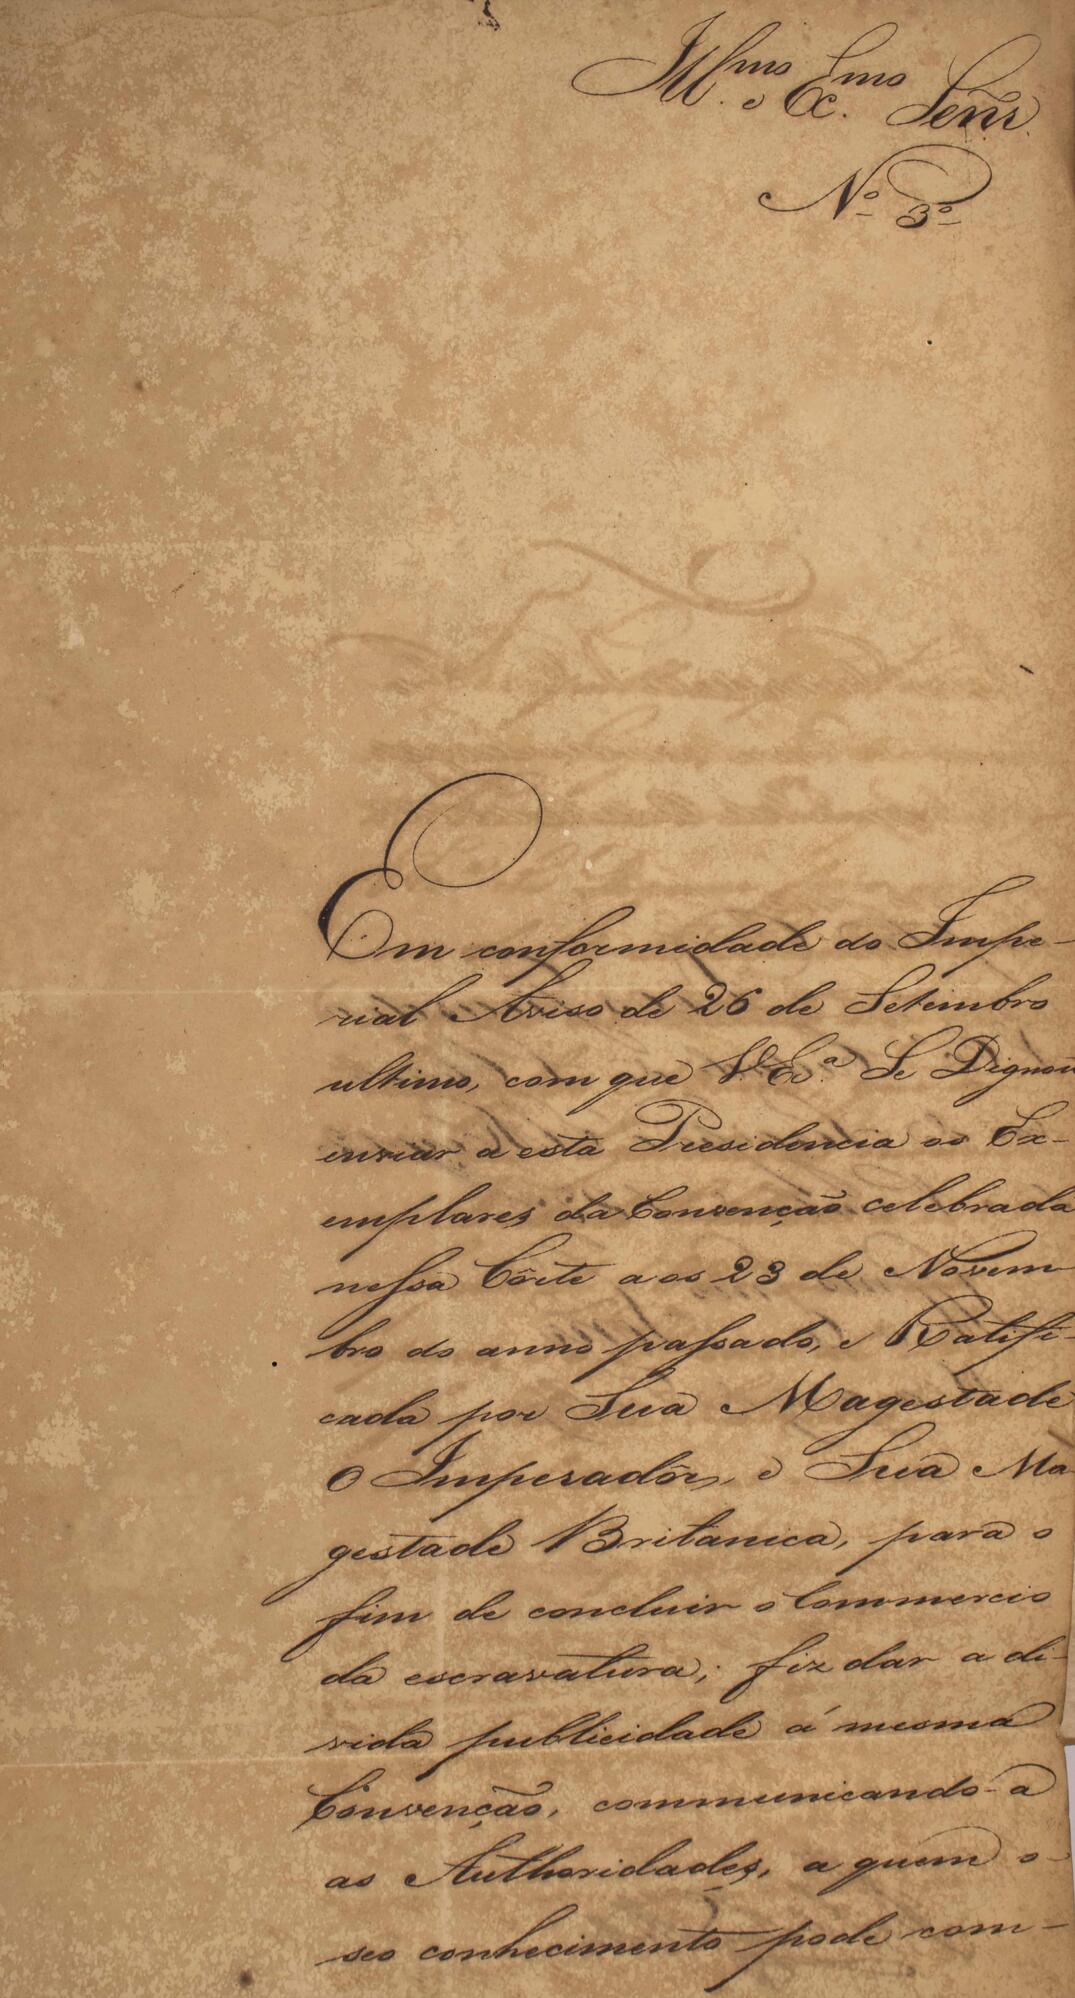 Ill.mo e Ex.mo Senr.
Nº 3º
Em conformidade do Impe-
rial Aviso de 26 de Setembro
ultimo, com que V. Ex.ª Se Dignou
enviar a esta Presidencia os Ex-
emplares da Convenção celebrada
nessa Côrte aos 23 de Novem-
bro do anno passado, e Ratifi-
cada por Sua Magestade
O Imperadôr, e Sua Ma
gestade Britanica, para o
fim de concluir o Commercio
da escravatura; fiz dar a di-
vida publicidade á mesma
Convenção, communicando-a
as Authoridades, a quem o
seo conhecimento pode com-